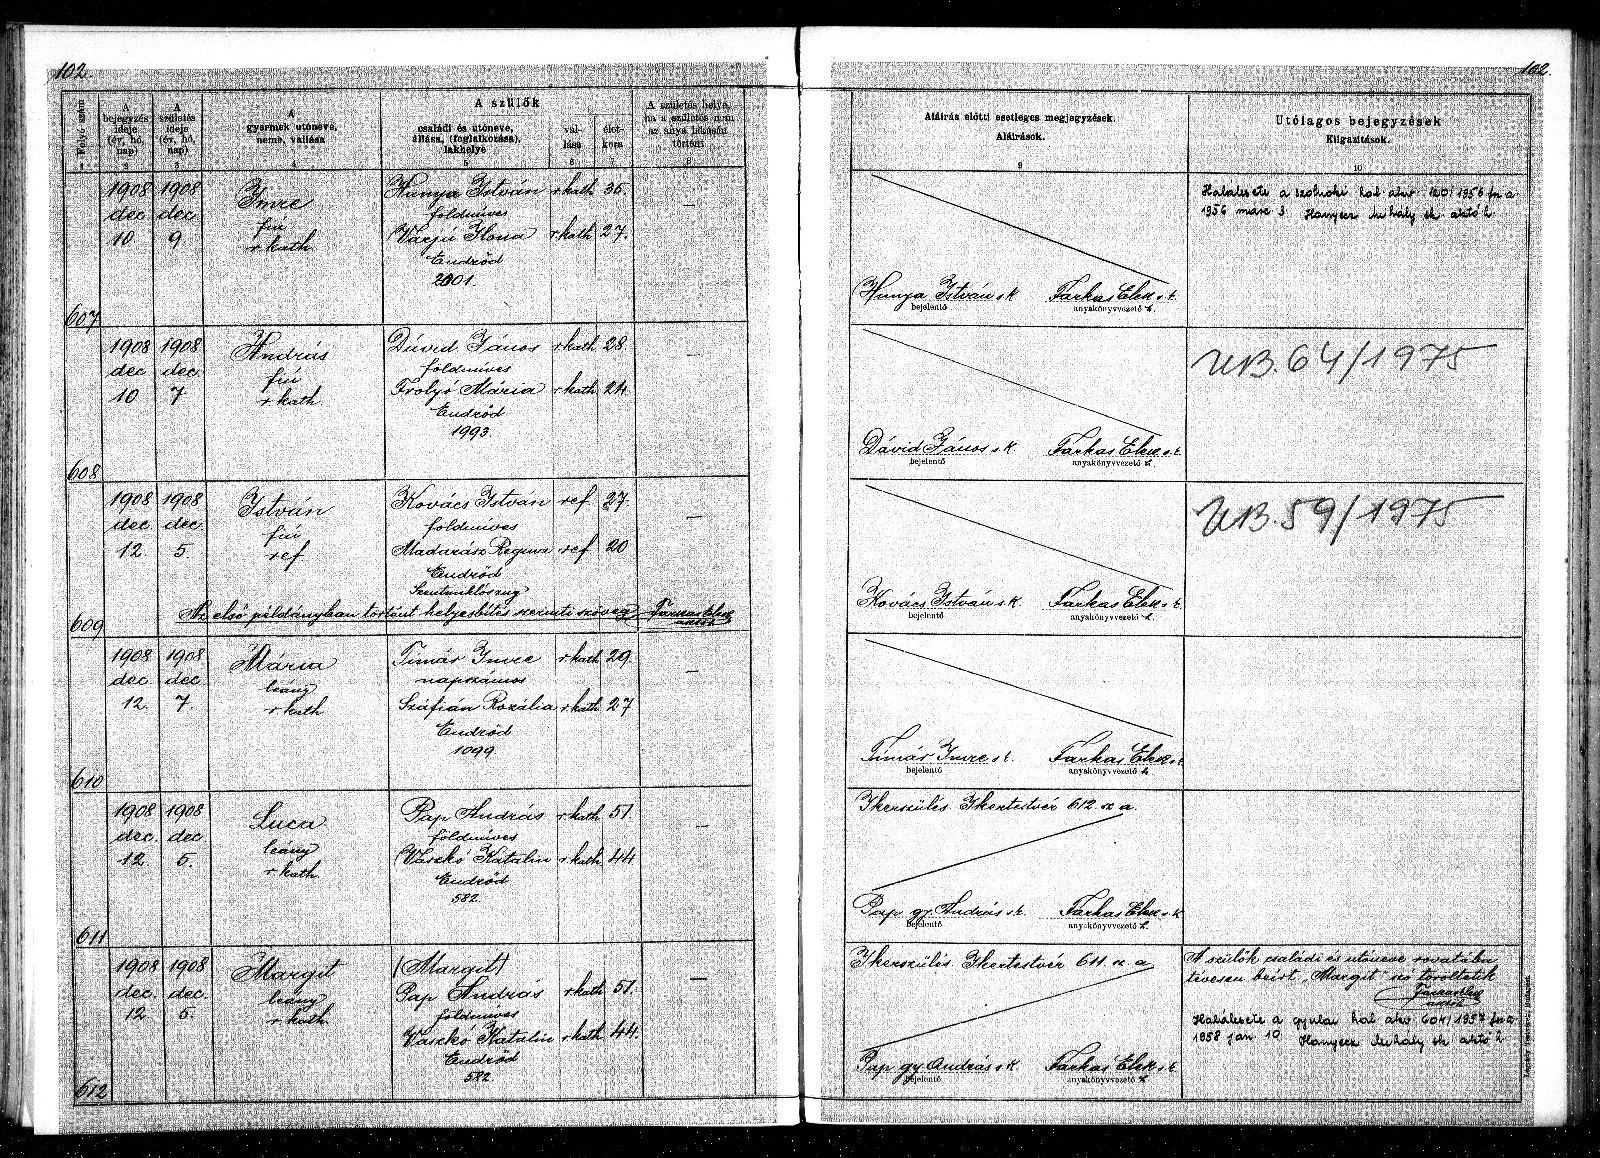 102.
102.
Folyó szám
A bejegyzés ideje (év, hó, nap)
A születés ideje (év, hó, nap)
A gyermek utóneve, neme, vallása
A szülők
családi és utóneve, állása, (foglalkozása), lakhelye
vallása
életkora
A születés helye, ha a születés nem az anya lakásán történt
Aláírás előtti esetleges megjegyzések.
Aláírások.
Utólagos bejegyzések
Kiigazítások.
4
5
6
7
8
9
10
607
1908 dec 10
1908 dec. 9
Imre
fiú
r. kath
Hunya István r. kath 36.
földmíves
Varjú Ilona r. kath 27.
Endrőd
2001.
—
Hunya István s k
bejelentő
Farkas Elek s. k.
anyakönyvvezető h.
Halálesete a szolnoki hal. akv. 120/1956 fsz a
1956 márc 3 Hanyecz Mihály sk aktó h
608
1908 dec 10
1908 dec. 7
András
fiú
r. kath.
Dávid János r. kath 28.
földmíves
Frolyó Mária r. kath. 24.
Endrőd
1993.
—
Dávid János s k
bejelentő
Farkas Elek s. k.
anyakönyvvezető h.
UB. 64/1975
609
1908 dec. 12
1908 dec. 5.
István
fiú
ref
Kovács István ref. 27.
földmíves
Madarász Regina ref 20
Endrőd
Szentmiklószug
—
Az első példányban történt helyesbítés szerinti szöveg Farkas Elek
Kovács István s k.
bejelentő
Farkas Elek s. k.
anyakönyvvezető h.
UB. 59/1975
610
1908 dec 12.
1908 dec. 7.
Mária
leány
r. kath
Timár Imre r. kath 29.
napszámos
Száfián Rozália r. kath. 27
Endrőd
1099.
—
Timár Imre s. k.
bejelentő
Farkas Elek s. k.
anyakönyvvezető h
611
1908 dec. 12
1908 dec. 5.
Luca
leány
r. kath.
Pap András r. kath 51.
földmíves
Vaszkó Katalin r. kath. 44
Endrőd
582.
—
Ikerszülés Ikertestvér 612. sz a.
Pap gy. András s k.
bejelentő
Farkas Elek s. k
anyakönyvvezető h.
612
1908 dec. 12
1908 dec. 5
Margit
leány
r. kath.
(Margit)
Pap András r. kath 51.
földmíves
Vaszkó Katalin r. kath 44.
Endrőd
582.
—
Ikerszülés Ikertestvér 611. sz a.
Pap gy. András s k.
bejelentő
Farkas Elek s. k.
anyakönyvvezető h
A szülők családi és utóneve rovatába
tévesen beírt „Margit" szó töröltetik
Farkas Elek
Halálesete a gyulai hal akv 604/1957 fsz a
1958 jan 10 Hanyecz Mihály sk aktó h